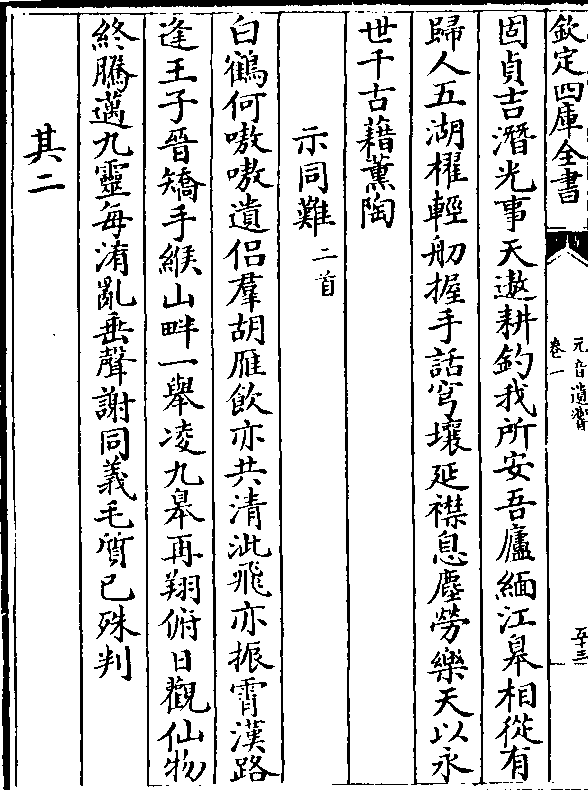 欽定四庫全書
元音遺響
卷一
五十三
固貞吉潛光事天遨耕釣我所安吾廬緬江臯相從有
歸人五湖櫂輕舠握手話穹壤延襟息塵勞樂天以永
世千古藉薰陶
示同難二首
白鶴何嗷嗷遺侣羣胡雁飲亦共清泚飛亦振霄漢路
逢王子晉矯手緱山畔一舉凌九臯再翔俯日觀仙物
終騰邁九靈每洧亂垂聲謝同義毛質已殊判
其二